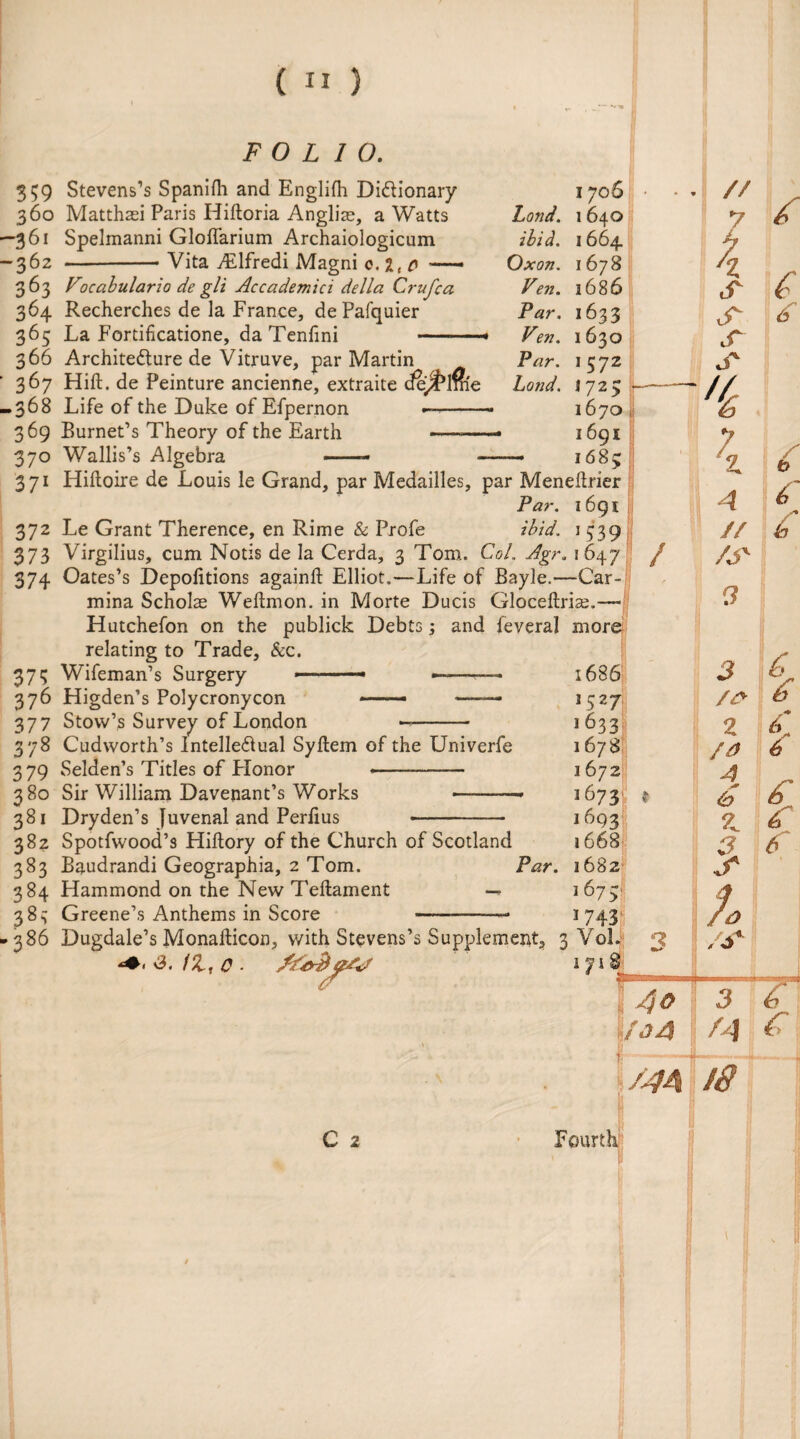 ( 11 )
FOLIO.
359 Stevens's Spaniſh and Engliſh Dictionary 1706 11
360 Matthæi Paris Hiſtoria Angliæ, a Watts Lond. 1640 7 6
361 Spelmanni Gloſſarium Archaiologicum ibid. 1664
362 ——— Vita Ælfredi Magni c. 2, 0 —— Oxon. 1678
363 Vocabulario de gli Accademici della Cruſca Ven. 1686 5 6
364 Recherches de la France, de Paſquier Par. 1633 5 6
365 La Fortificatione, da Tenſini —— Ven. 1630 5
366 Architecture de Vitruve, par Martin Par. 1572 5
367 Hiſt. de Peinture ancienne, extraite de Pline Lond. 1725
368 Life of the Duke of Eſpernon —— 1670 6
369 Burnet's Theory of the Earth —— 1691 7
370 Wallis's Algebra —— —— 1685 2 6
371 Hiſtoire de Louis le Grand, par Medailles, par Meneſtrier
Par. 1691 4 6
372 Le Grant Therence, en Rime & Proſe ibid. 1539 11 6
373 Virgilius, cum Notis de la Cerda, 3 Tom. Col. Agr. 1647 1 15
374 Oates's Depoſitions againſt Elliot.—Life of Bayle.—Car-
mina Scholæ Weſtmon. in Morte Ducis Gloceſtriæ.— 3
Hutcheſon on the publick Debts; and ſeveral more
relating to Trade, &c.
375 Wiſeman's Surgery —— —— 1686 3 6
376 Higden's Polycronycon —— —— 1527 10 6
377 Stow's Survey of London —— 1633 2 6
378 Cudworth's Intellectual Syſtem of the Univerſe 1678 10 6
379 Selden's Titles of Honor —— 1672 4
380 Sir William Davenant's Works —— 1673 6 6
381 Dryden's Juvenal and Perſius —— 1693 2 6
382 Spotſwood's Hiſtory of the Church of Scotland 1668 3 6
383 Baudrandi Geographia, 2 Tom. Par. 1682 5
384 Hammond on the New Teſtament — 1675
385 Greene's Anthems in Score —— 1743
386 Dugdale's Monaſticon, with Stevens's Supplement, 3 Vol. 3 15
1718
40 3 6
104 14 6
144 18
C 2 Fourth